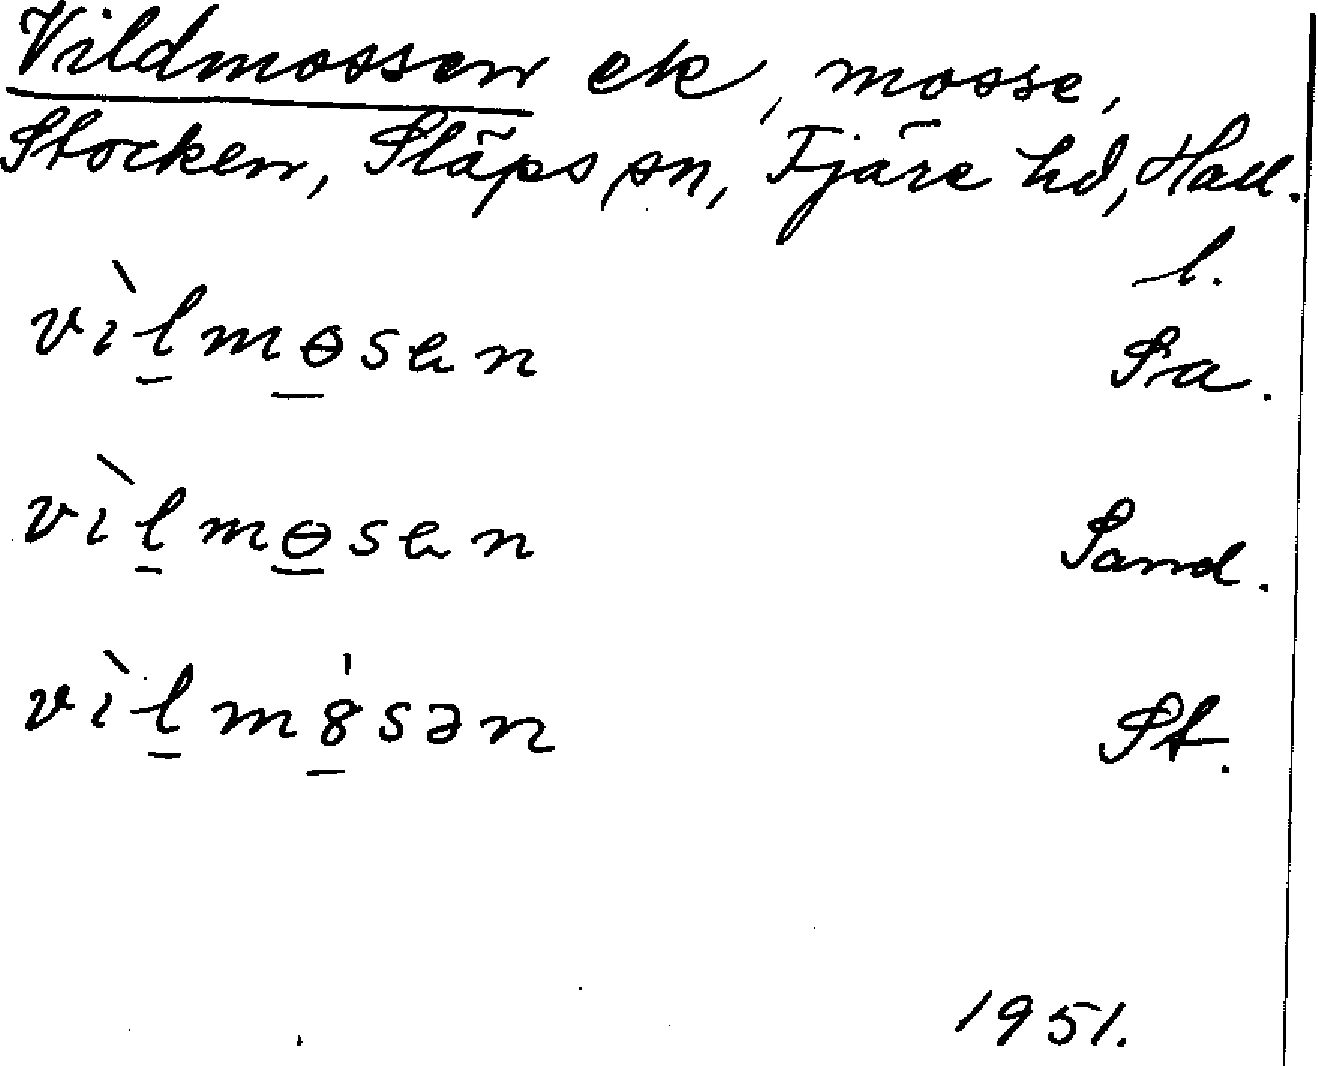 Vildmossen ek, mosse,
Stocken, Släps sn, Fjäre hd, Hall.
l.
vìl̠mɵ̠sen Sa.
vìl̠mɵ̠sen Sand.
vìl̠m8̠̍sən St.
1951.